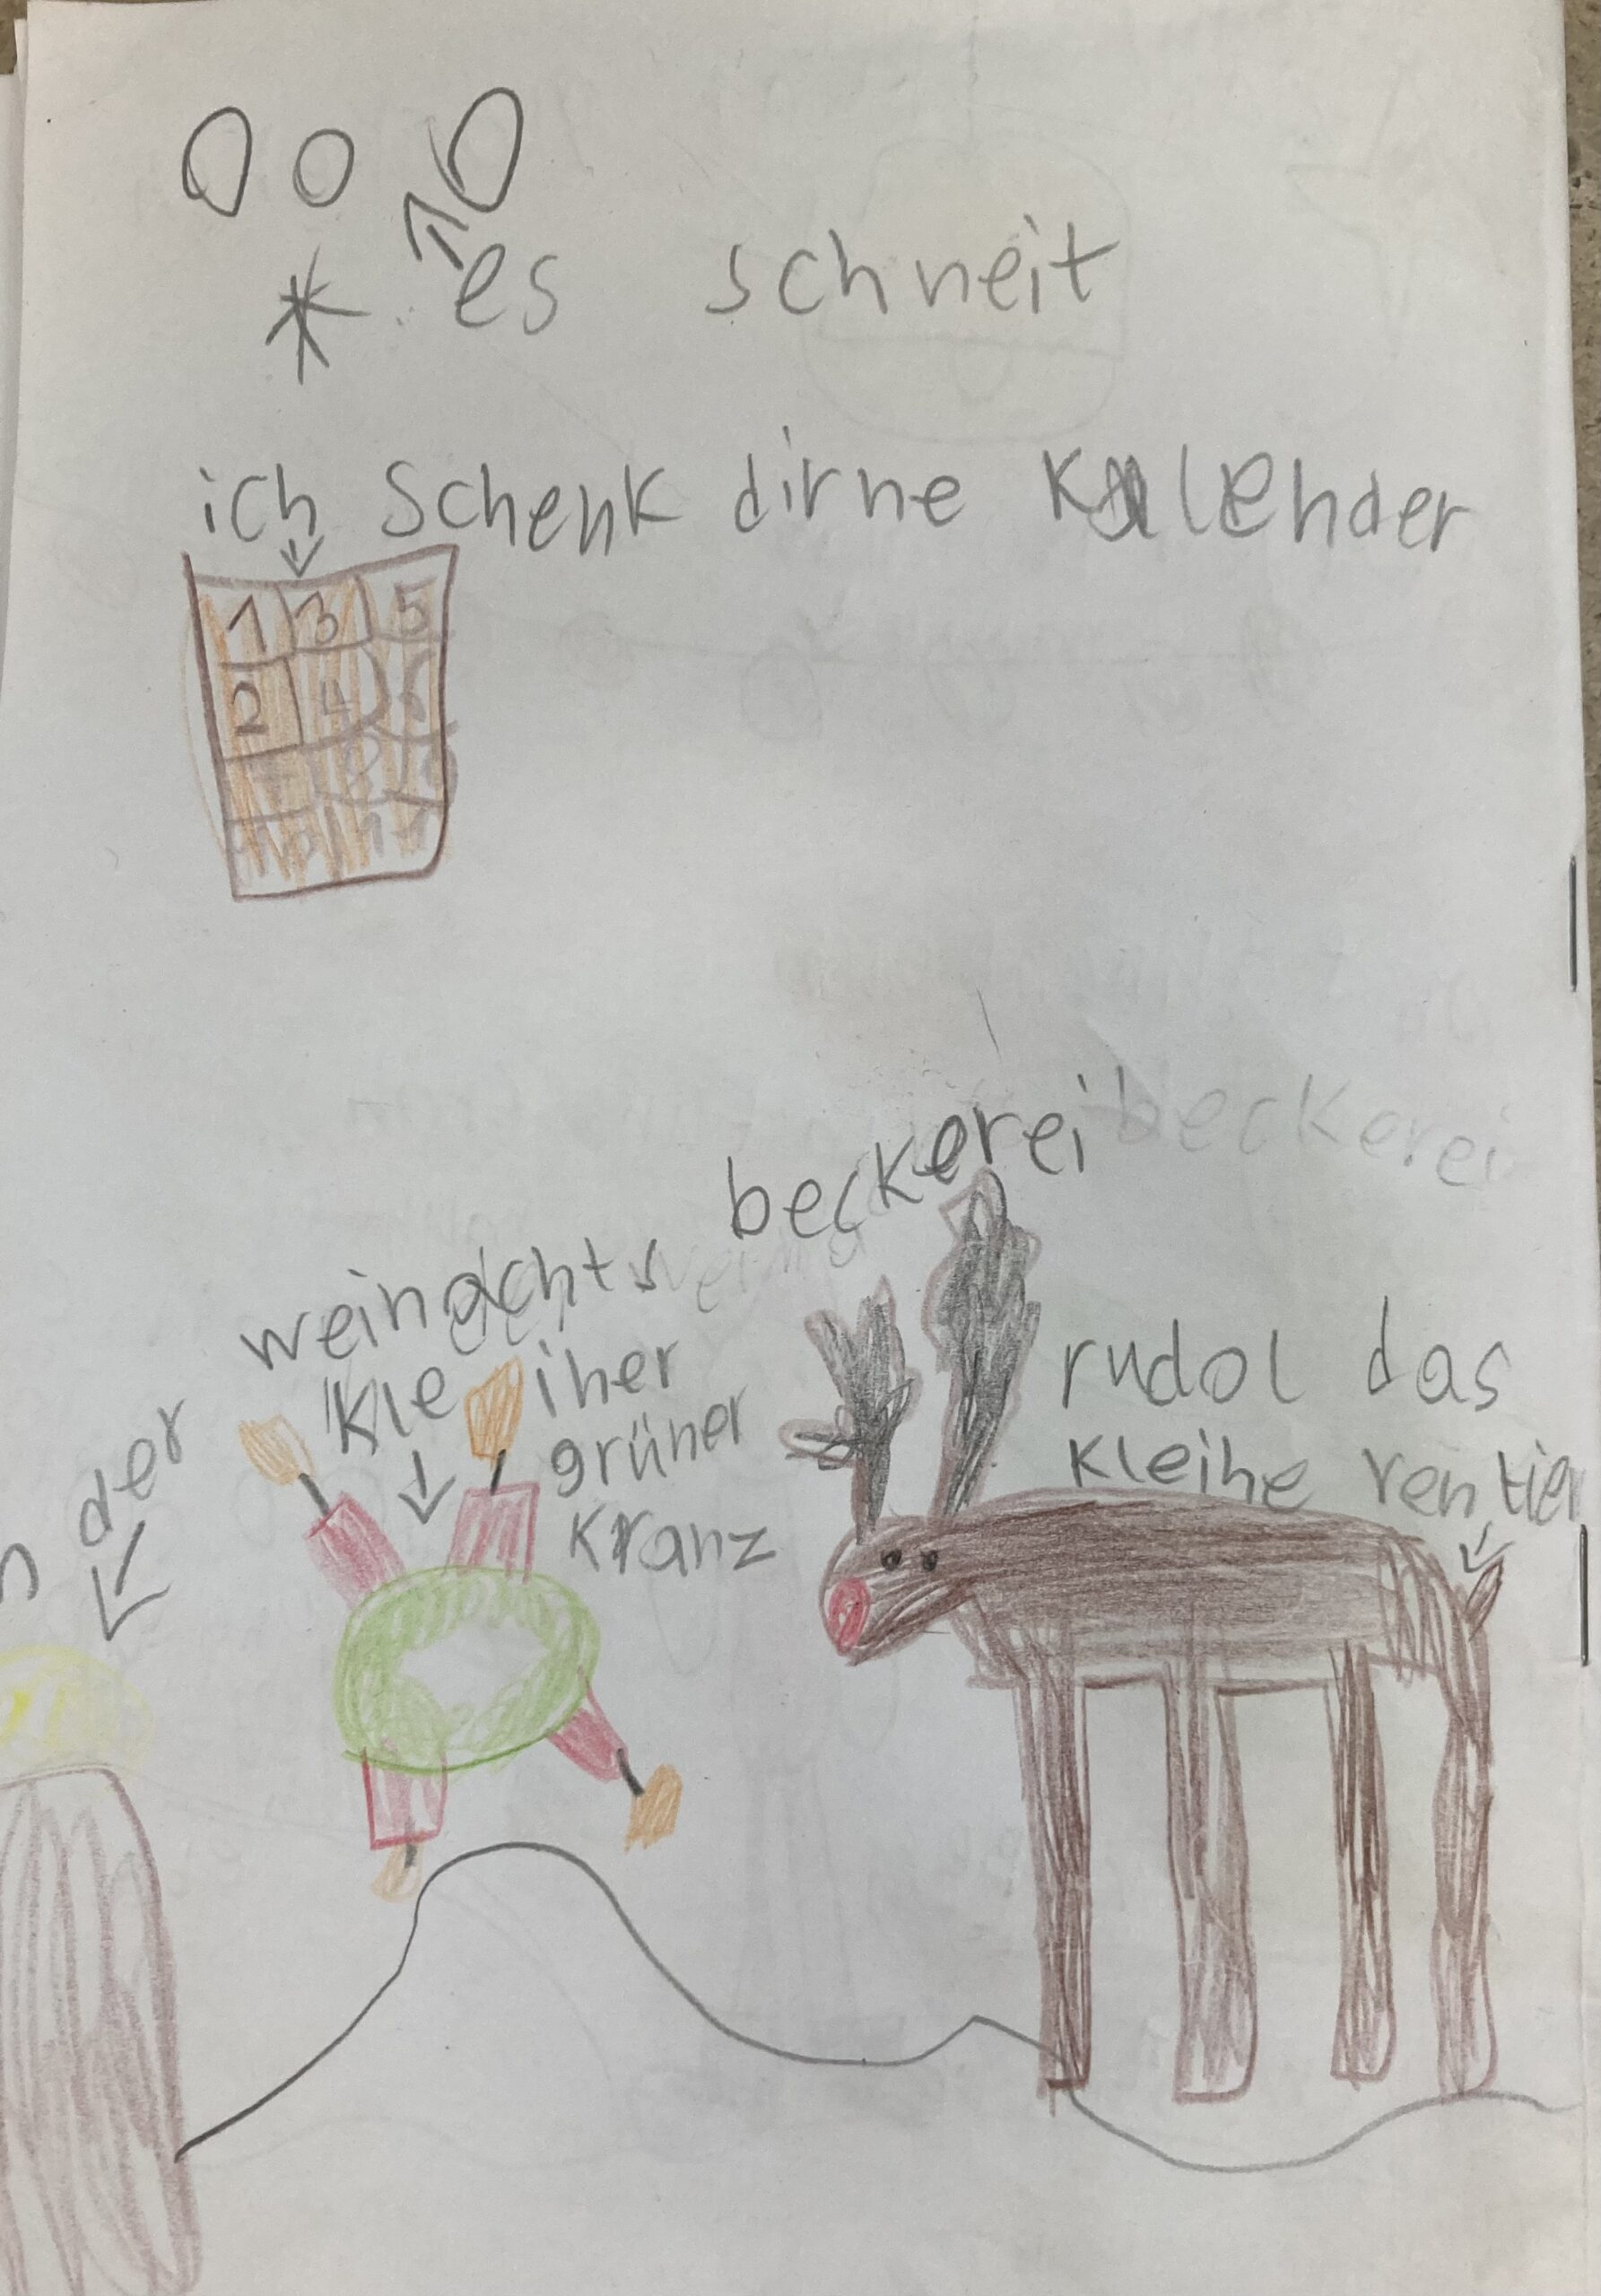 es schneit
ich schenk dirne Kalender
1 3 5
2 4 6
beckerei
weinachts beckerei
der
kleiner
grüner
kranz
rudol das
kleine rentier